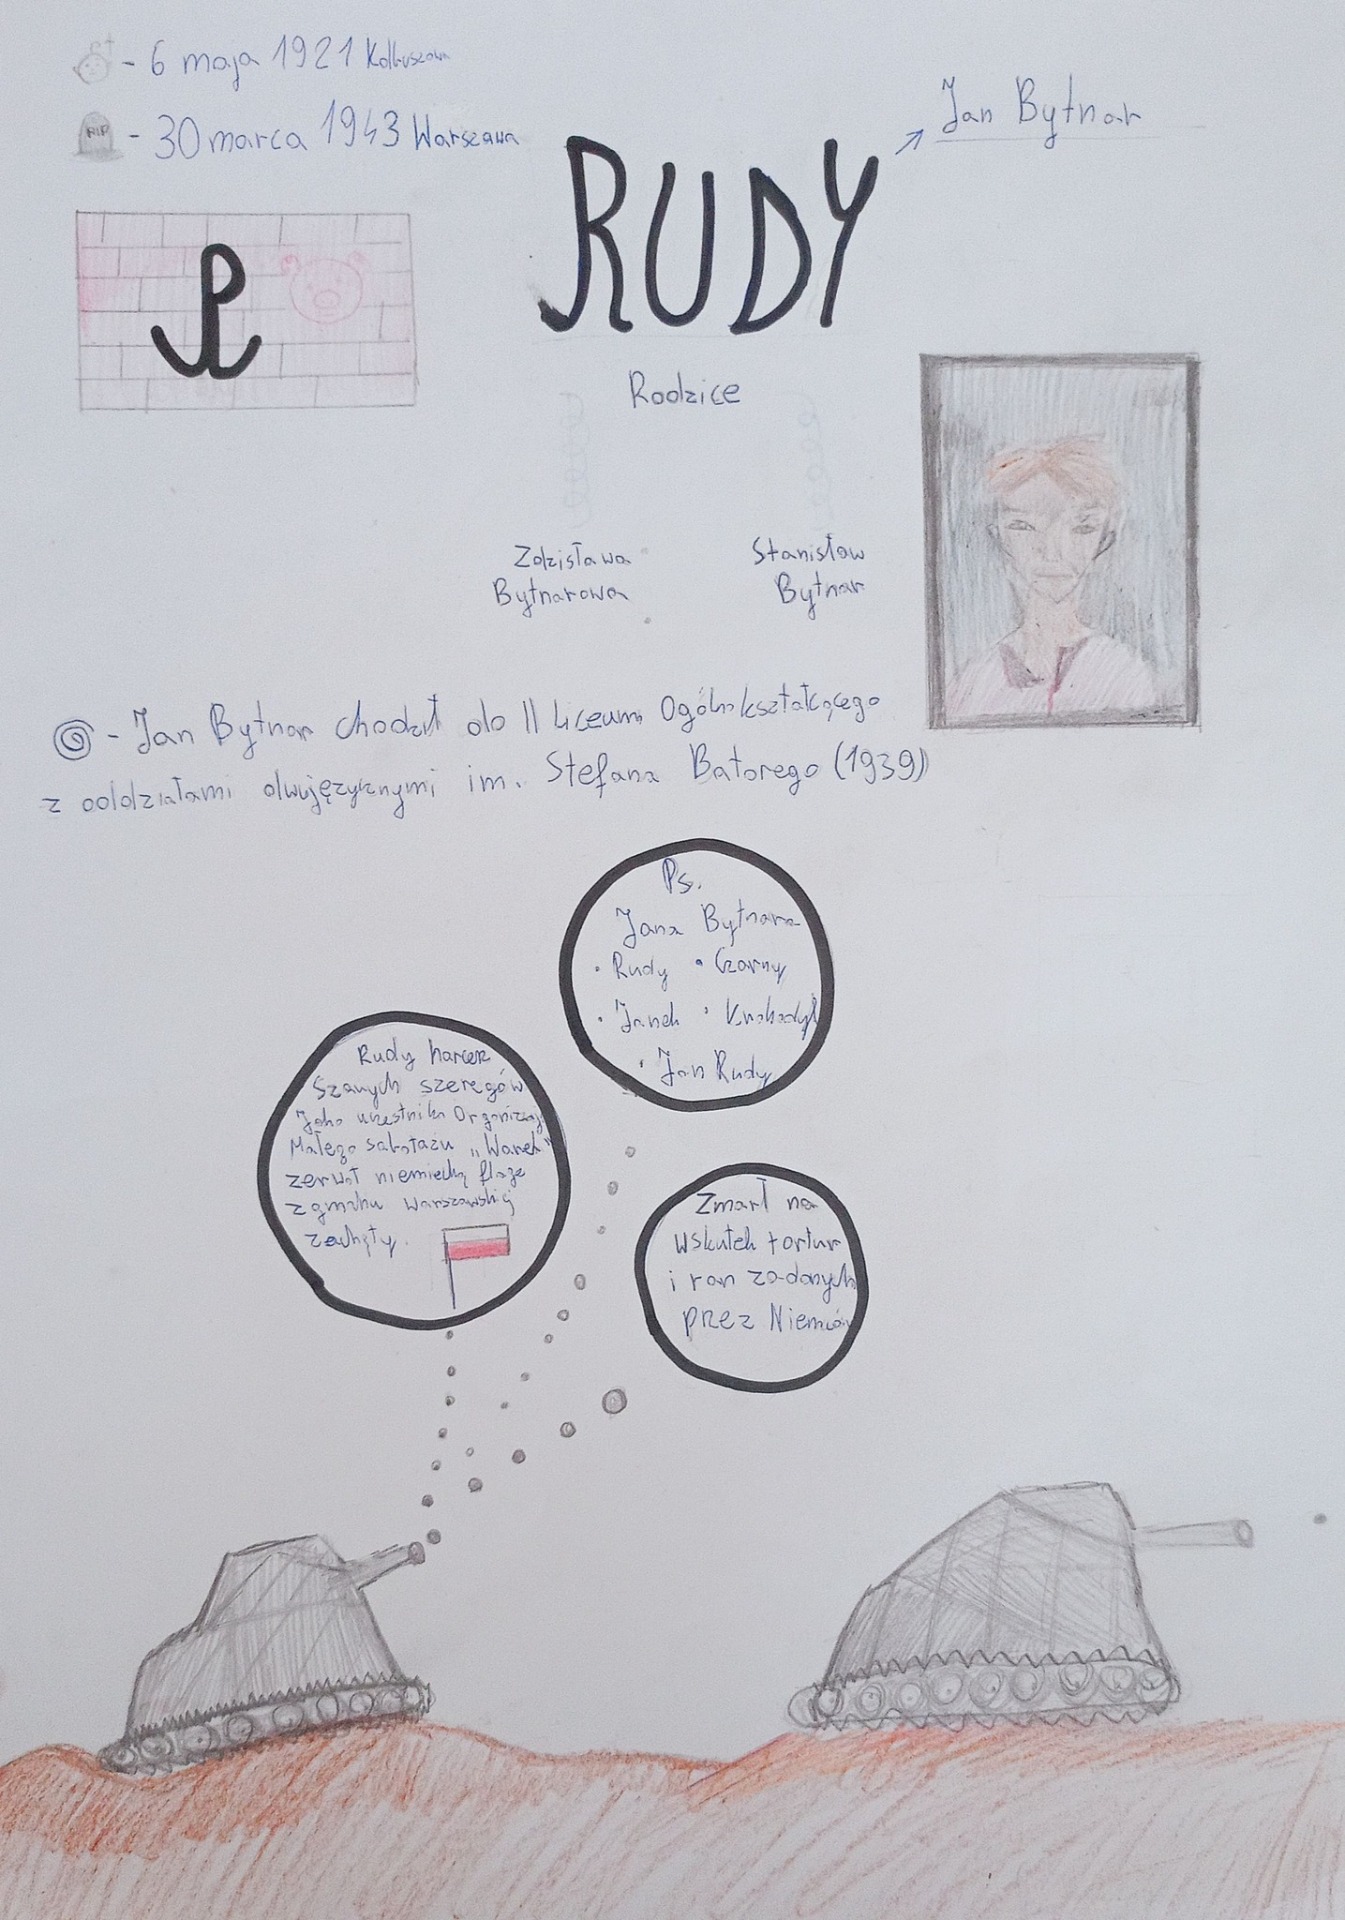 - 6 maja 1921 Kolbuszowa
RIP
- 30 marca 1943 Warszawa
Jan Bytnar
RUDY
Rodzice
Zdzisława
Bytnarowa
Stanisław
Bytnar
- Jan Bytnar chodził do II Liceum Ogólnokształcącego
z oddziałami dwujęzycznymi im. Stefana Batorego (1939)
Ps.
Jana Bytnara
• Rudy • Czarny
• Janek • Krokodyl
• Jan Rudy
Rudy harcerz
Szarych szeregów
Jako uczestnik Organizacji
Małego sabotażu „Wawer"
zerwał niemiecką flagę
z gmachu warszawskiej
zachęty.
Zmarł na
wskutek tortur
i ran zadanych
przez Niemców